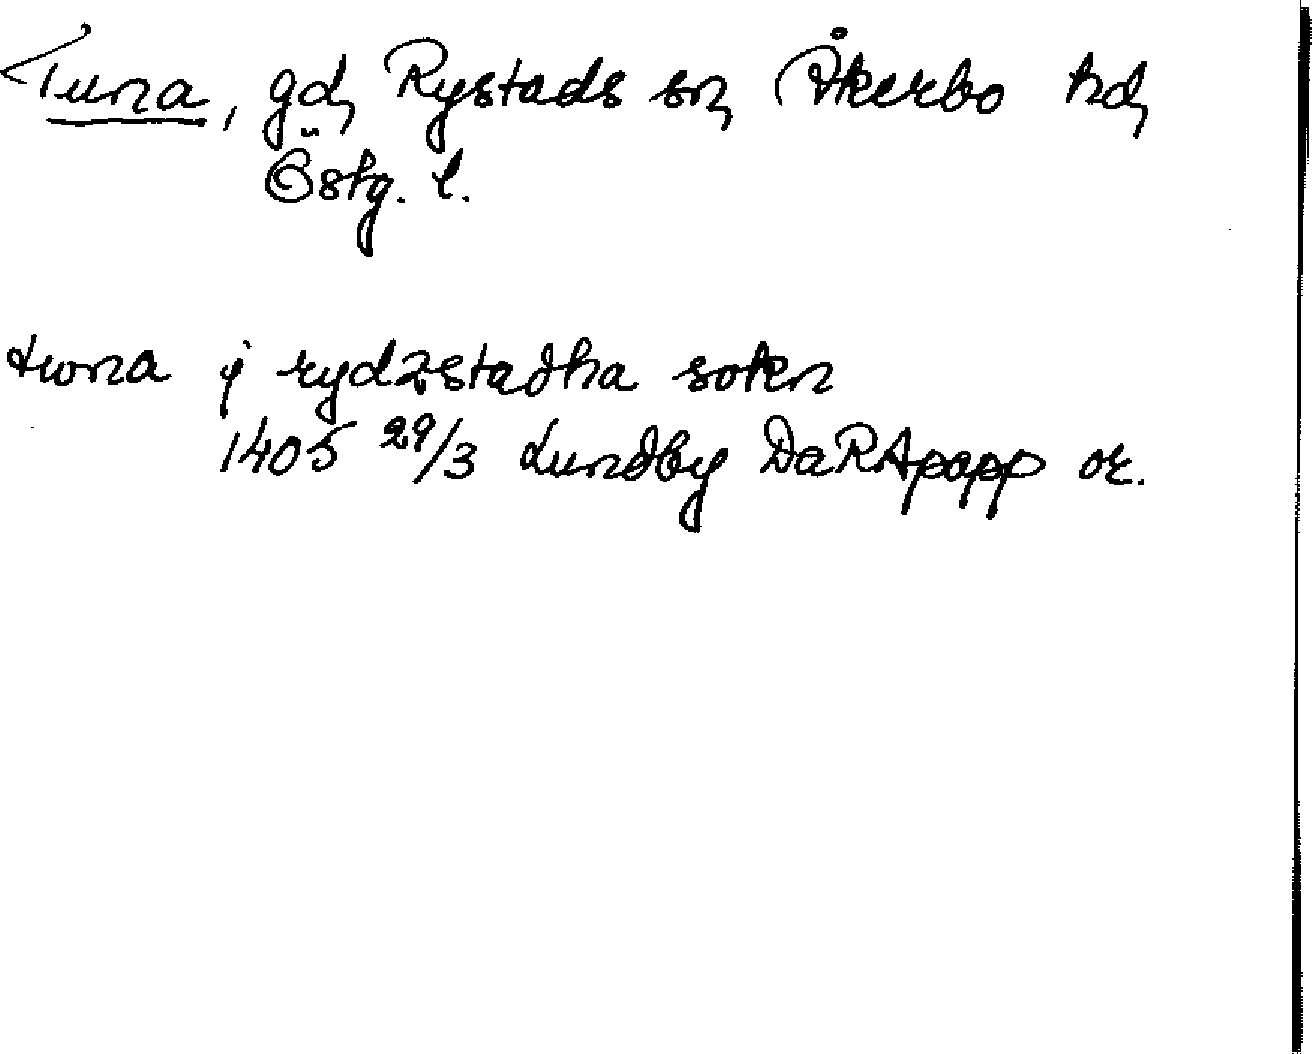 Tuna, gd, Rystads sn, Åkerbo hd,
Östg. l.
twna ÿ rydzstadha sokn
1405 29/3 Lundby DaRApapp or.